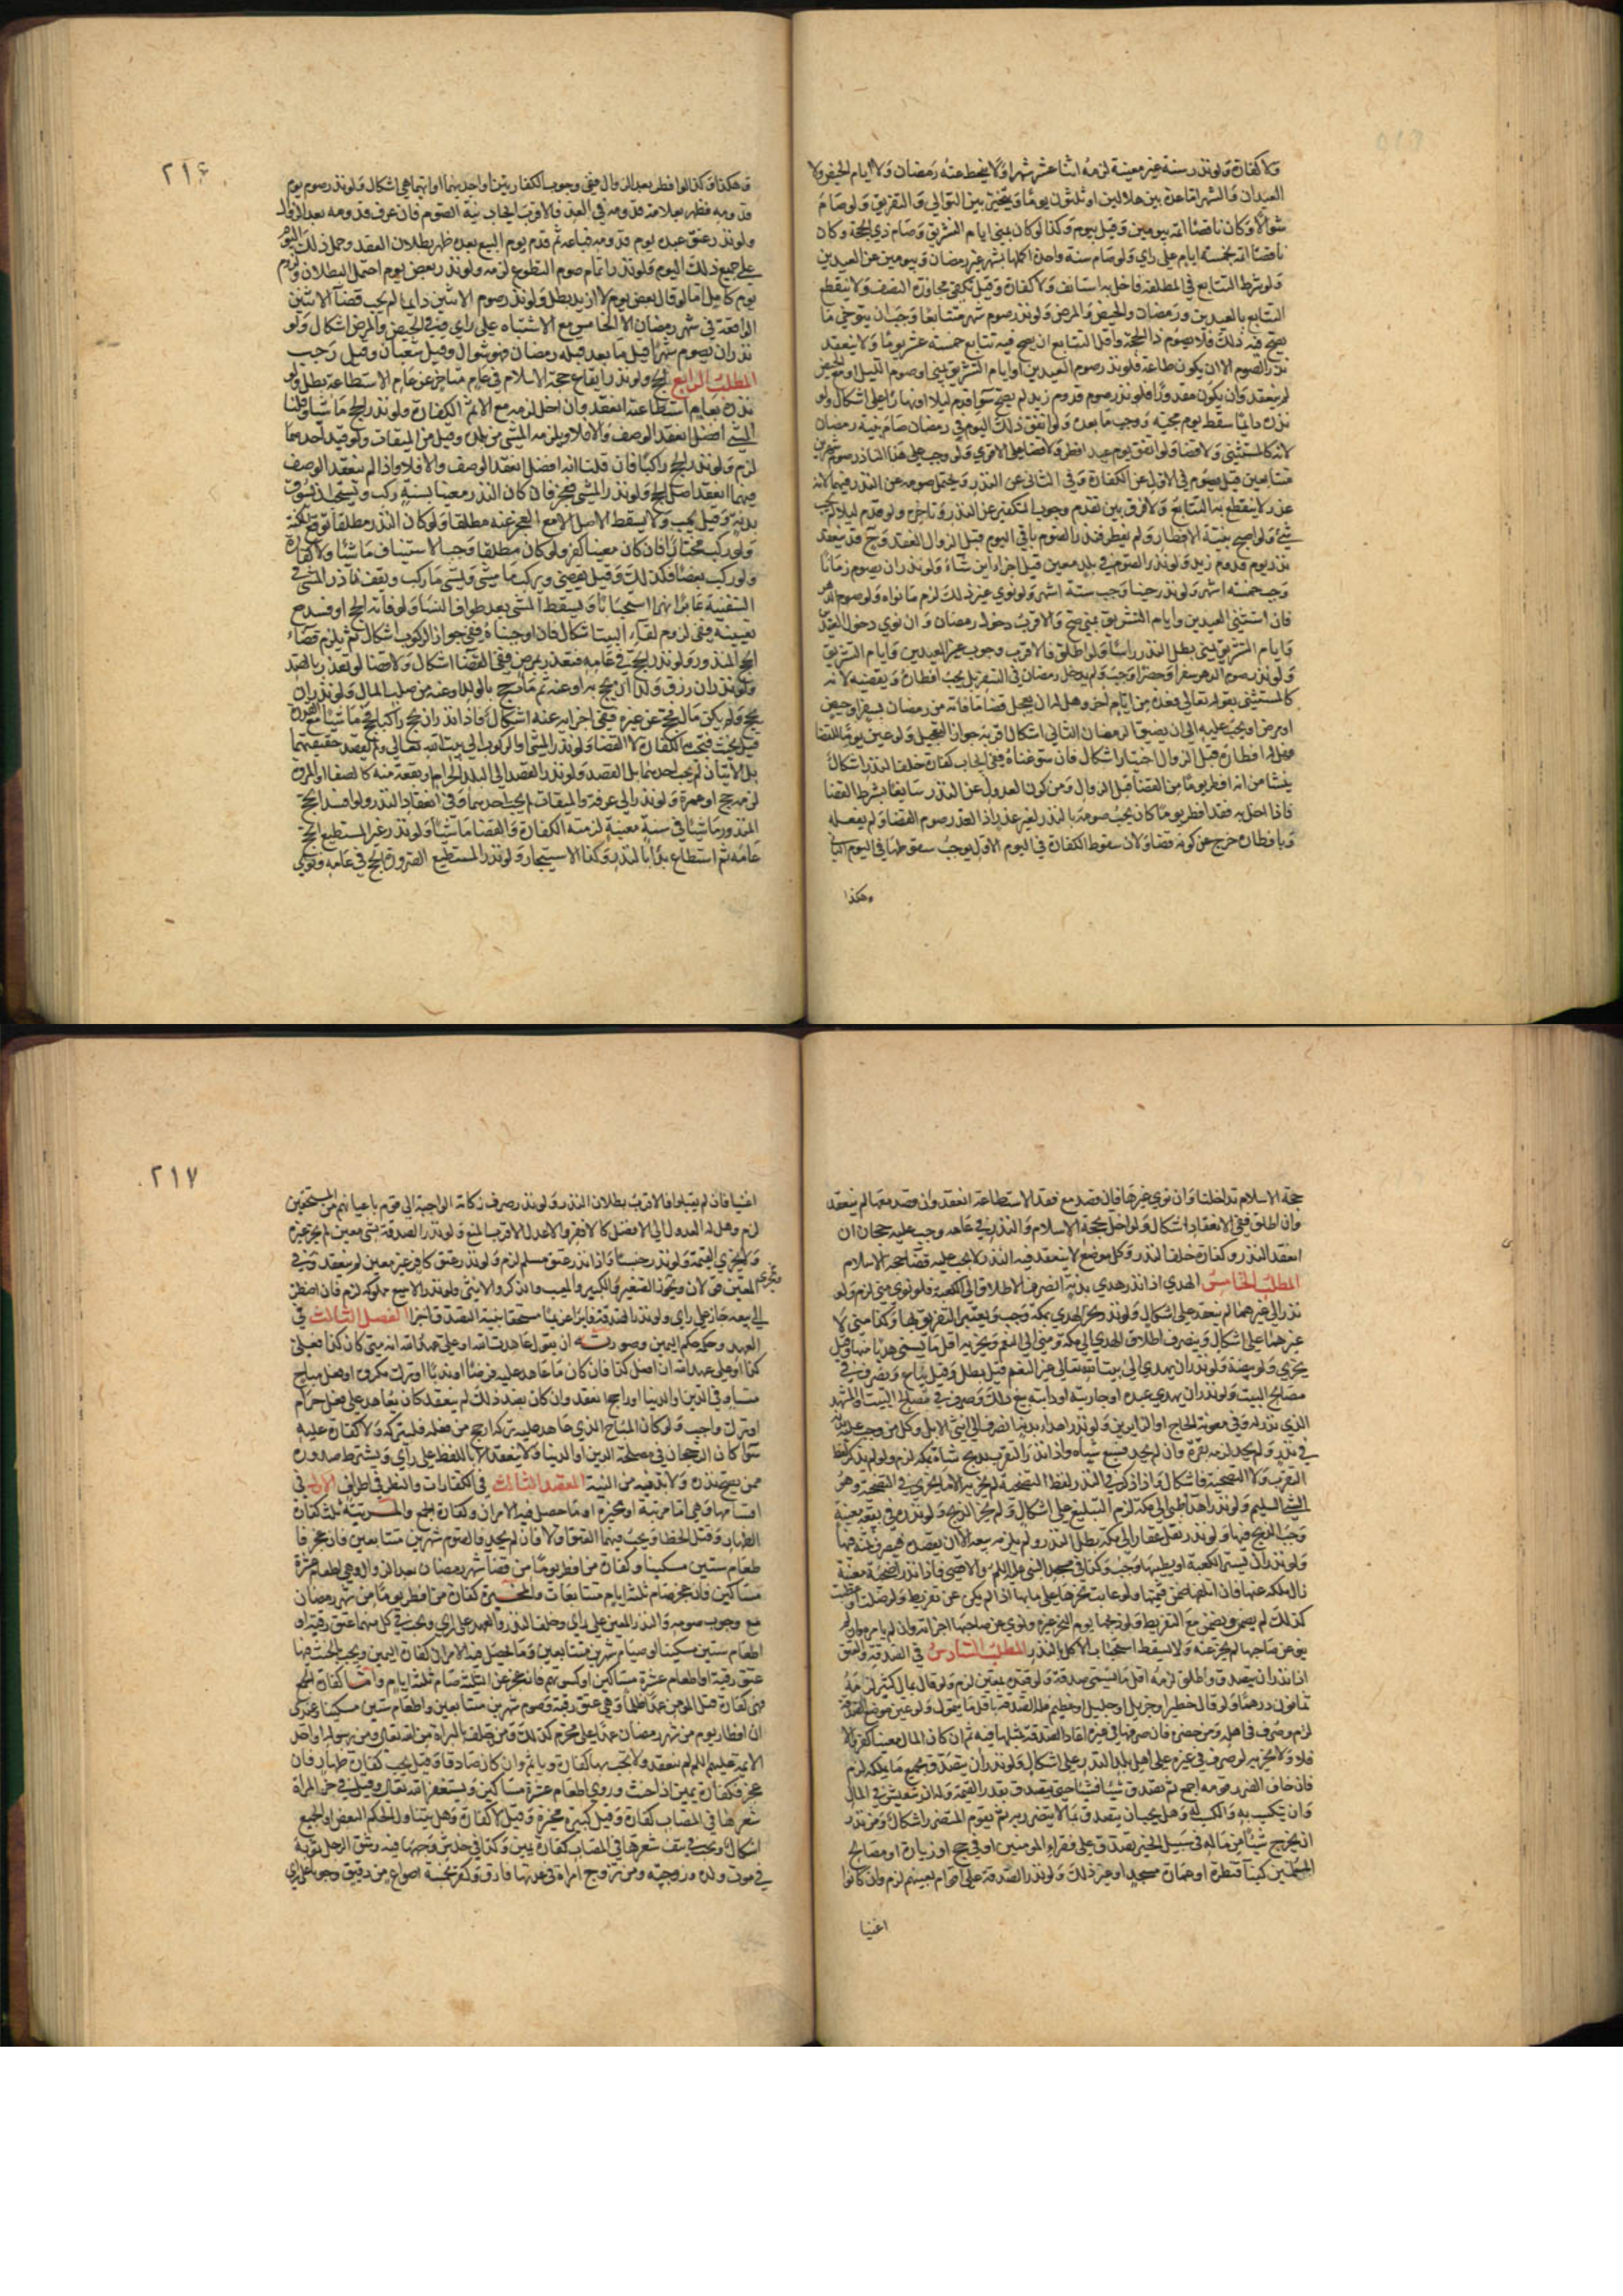 ولا كفارة ولو نذر سنة غير معينة لزمه اثنا عشر شهرا ولا ينحط عنه رمضان ولا ايام الحيض ولا
العيدان والشهر اما عدة بين هلالين او ثلثون يوما ويتخير بين التوالي والتفريق ولو صام
شوالا وكان ناقصا اتمه بيومين وقيل بيوم وكذا لو كان بمنى ايام التشريق وصام ذي الحجة وكان
ناقصا اتمه بخمسة ايام على راي ولو صام سنة واحدة اكملها بشهر عن رمضان وبيومين عن العيدين
ولو شرط التتابع في المطلقة فاخل به استانف ولا كفارة وقيل يكفي مجاوزة النصف ولا ينقطع
التتابع بالعيدين ورمضان والحيض والمرض ولو نذر صوم شهر متتابعا وجب ان يتوخى ما
يصح فيه ذلك فلا يصوم ذا الحجة واقل التتابع ان يصح فيه تتابع خمسة عشر يوما ولا ينعقد
نذر الصوم الا ان يكون طاعة فلو نذر صوم العيدين او ايام التشريق بمنى او صوم الليل او مع الحيض
لم ينعقد وان يكون مقدورا فلو نذر صوم قدوم زيد لم يصح سوا قدم ليلا او نهارا على اشكال ولو
نذره دايما سقط يوم مجيئه ووجب ما بعده ولو اتفق ذلك اليوم في رمضان صام بنية رمضان
لانه كالمستثنى ولا قضا ولو اتفق يوم عيد افطر ولا قضا على الاقوى ولو وجب على هذا الناذر صوم شهرين
متتابعين قيل يصوم في الاول عن الكفارة وفي الثاني عن النذر ويحتمل صومه عن النذر فيهما لانه
عذر لا ينقطع به التتابع ولا فرق بين تقدم وجوب التكفير عن النذر وتاخره ولو قدم ليلا لم يجب
شي ولو اصبح بنية الافطار ولم يفطر فنذر الصوم باقي اليوم قبل الزوال انعقد وح قد ينعقد
نذر يوم قدوم زيد ولو نذر الصوم في بلد معين قيل اجزاه اين شاء ولو نذر ان يصوم زمانا
وجب خمسة اشهر ولو نذر حينا وجب ستة اشهر ولو نوى غير ذلك لزم ما نواه ولو صوم الدهر
فان استثنى العيدين وايام التشريق بمنى صح والاقرب دخول رمضان وان نوى دخول العيدين
وايام التشريق بمنى بطل النذر راسا ولو اطلق فالاقرب وجوب غير العيدين وايام التشريق
ولو نذر صوم الدهر سفرا وحضرا وجب ولم يدخل رمضان في السفر بل يجب افطاره ويقضيه لانه
كالمستثنى بقوله تعالى فعدة من ايام اخر وهل له ان يعجل قضا ما فاته من رمضان بسفر او حيض
او مرض او يجب عليه الى ان يضيق الرمضان الثاني اشكال اقربه جواز التعجيل ولو عين يوما للقضا
فهل له افطاره قبل الزوال اختيارا اشكال فان سوغناه ففي ايجاب كفارة خلف النذر اشكال
ينشا من انه افطر يوما من القضا قبل الزوال ومن كون العدول عن النذر سايغا بشرط القضا
فاذا اخل به فقد افطر يوما كان يجب صومه بالنذر لغير عذر اذ العذر صوم القضا ولم يفعله
وبافطاره خرج عن كونه قضا ولان سقوط الكفارة في اليوم الاول يوجب سقوطها في اليوم الثاني
وهكذا
٢١٦
وهكذا وكذا لو افطر بعد الزوال ففي وجوب الكفارتين او احديهما او ايتهما هي اشكال ولو نذر صوم يوم
قدومه فظهر بعلامة قدومه في الغد فالاقرب ايجاب نية الصوم فان عرف قدومه بعد الزوال
ولو نذر عتق عبده يوم قدومه فباعه ثم قدم يوم البيع بعده ظهر بطلان العقد وحمل ذلك اليوم
على جميع ذلك اليوم ولو نذر اتمام صوم التطوع لزمه ولو نذر بعض يوم احتمل البطلان ولزوم
يوم كامل اما لو قال بعض يوم لا ازيد بطل ولو نذر صوم الاثنين دايما لم يجب قضا الاثنين
الواقعة في شهر رمضان الا الخامس مع الاشتباه على راي وفي الحيض والمرض اشكال ولو
نذر ان يصوم شهرا قبل ما بعد قبله رمضان فهو شوال وقيل شعبان وقيل رجب
المطلب الرابع الحج ولو نذر ايقاع حجة الاسلام في عام متاخر عن عام الاستطاعة بطل ولو
نذره بعام استطاعته انعقد وان اخل لزمه مع الاثم الكفارة ولو نذر الحج ماشيا وقلنا
المشي افضل انعقد الوصف والا فلا ويلزمه المشي من بلده وقيل من الميقات ولو قيد احدهما
لزم ولو نذر الحج راكبا فان قلنا انه افضل انعقد الوصف والا فلا واذا لم ينعقد الوصف
فيهما انعقد اصل الحج ولو نذر المشي فعجز فان كان النذر معينا بسنة ركب ويستحب ان يسوق
بدنة وقيل يجب ولا يسقط الاصل الا مع العجز عنه مطلقا ولو كان النذر مطلقا توقع المكنة
ولو ركب مختارا فان كان معينا كفر ولو كان مطلقا وجب الاستيناف ماشيا ولا كفارة
ولو ركب بعضا فكذلك وقيل يقضي ويركب ما مشى ويمشي ما ركب ويقف ناذر المشي في
السفينة عابرا نهرا استحبابا ويسقط المشي بعد طواف النسا ولو فاته الحج او فسد مع
تعيينه ففي لزوم لقاء البيت اشكال فان اوجبناه ففي جواز الركوب اشكال ثم يلزم قضاء
الحج المنذور ولو نذر الحج في عامه فتعذر بمرض ففي القضا اشكال ولا قضا لو تعذر بالصد
ولو نذر ان رزق ولدا ان يحج به او عنه ثم مات حج بالولد او عنه من صلب المال ولو نذر ان
يحج ولم يكن له مال فحج عن غيره ففي اجزائه عنه اشكال واذا نذر ان يحج راكبا فحج ماشيا مع القدرة
قيل يحنث فتجب الكفارة لا القضا ولو نذر المشي او الركوب الى بيت الله تعالى ولم يقصد حقيقتهما
بل الاتيان لم يجب احدهما بل القصد ولو نذر القصد الى البلد الحرام او بقعة منه كالصفا او المروة
لزمه حج او عمرة ولو نذر الى عرفة او الميقات لم يجب احدهما وفي انعقاد النذر ولو افسد الحج
المنذور ماشيا في سنة معينة لزمته الكفارة والقضا ماشيا ولو نذر غير المستطيع الحج
عامه ثم استطاع بدا بالنذر وكذا الاستيجار ولو نذر المستطيع الصرورة الحج في عامه ونوى
حجة الاسلام تداخلتا وان نوى غيرها فان قصد مع فقد الاستطاعة انعقد وان قصد معها لم ينعقد
وان اطلق ففي الانعقاد اشكال ولو اخل بحجة الاسلام والنذر في عامه وجب عليه حجتان ان
انعقد النذر وكفارة خلف النذر وكل موضع لا ينعقد فيه النذر لا يجب عليه قضا حجة الاسلام
المطلب الخامس الهدي اذا نذر هدي بدنة انصرف الاطلاق الى الكعبة فلو نوى منى لزم ولو
نذر الى غيرهما لم ينعقد على اشكال ولو نذر نحر الهدي بمكة وجب ويعتبر التفرقة بها وكذا منى لا
غيرهما على اشكال وينصرف اطلاق الهدي الى مكة ومنى الى النعم ويجزيه اقل ما يسمى هديا منها وقيل
يجزي ولو بيضة ولو نذر ان يهدي الى بيت الله تعالى غير النعم قيل بطل وقيل يباع ويصرف في
مصالح البيت ولو نذر ان يهدي عبده او جاريته او دابته بيع ذلك وصرف في مصالح البيت او المشهد
الذي نذر له وفي معونة الحاج او الزايرين ولو نذر اهداء بدنة انصرف الى انثى الابل وكل من وجب عليه بدنة
في نذر ولم يجد لزمه بقرة وان لم يجد فسبع شياه واذا نذر التقرب بذبح شاة بمكة لزم ولو لم يذكر لفظ
التقرب ولا التضحية فاشكال واذا ذكر في النذر لفظ التضحية لم يجزيه الا ما يجزي في التضحية وهو
الثني السليم ولو نذر اهداء ظبي الى مكة لزم التبليغ على اشكال ولم يجز الذبح ولو نذره في بقعة معينة
وجب الذبح فيها ولو نذر نقل عقار الى مكة بطل النذر ولم يلزمه بيعه الا ان يقصده فيصرف ثمنه فيها
ولو نذر ان يستر الكعبة او يطيبها وجب وكذا في مسجد النبي عليه السلم والاقصى واذا نذر اضحية معينة
زال ملكه عنها فان اتلفها ضمن قيمتها ولو عابت نحرها على ما بها اذا لم يكن عن تفريط ولو ضلت او عطبت
كذلك لم يضمن ويضمن مع التفريط ولو ذبحها يوم النحر غيره ونوى عن صاحبها اجزاته وان لم يامره ولو لم
ينو عن صاحبها لم يجز عنه ولا يسقط استحباب الاكل بالنذر المطلب السادس في الصدقة والعتق
اذا نذر ان يتصدق واطلق لزمه اقل ما يسمى صدقة ولو قيده بمعين لزم ولو قال بمال كثير لزمه
ثمانون درهما ولو قال خطير او جزيل او جليل او عظيم فله الصدقة باقل ما يتمول ولو عين موضع الصدقة
لزم وصرف في اهله ومن حضره فان صرفها في غيره اعاد الصدقة بمثلها فيه ثم ان كان المال معينا كفر والا
فلا ولا يجزيه لو صرف في غيره على اهل بلد النذر على اشكال ولو نذر ان يتصدق بجميع ما يملكه لزم
فان خاف الضرر قومه اجمع ثم تصدق شيئا فشيئا حتى يتصدق بقدر القيمة وله ان يتعيش في المال
وان يتكسب به والكسب له وهل يجب ان يتصدق بما لا يتضرر به ثم يقوم المتضرر اشكال ومن نذر
ان يخرج شيئا من ماله في سبيل الخير تصدق على فقراء المومنين او في حج او زيارة او مصالح
المسلمين كبنا قنطرة او عمارة مسجد او غير ذلك ولو نذر الصدقة على اقوام بعينهم لزم وان كانوا
اغنيا
٢١٧
اغنيا فان لم يقبلوا فالاقرب بطلان النذر ولو نذر صرف زكاته الواجبة الى قوم باعيانهم من المستحقين
لزم وهل له العدول الى الافضل كالافقر والاعدل الاقرب المنع ولو نذر الصدقة بشي معين لم يجز غيره
ولا يجزي القيمة ولو نذر جنسا واذا نذر عتق مسلم لزم ولو نذر عتق كافر غير معين لم ينعقد وفي
المعين قولان ويجزي الصغير والكبير والمعيب والذكر والانثى ولو نذر الا يبيع مملوكه لزم فان اضطر
الى بيعه جاز على راي ولو نذر الصدقة الفصل الثالث في
العهد وحكمه حكم اليمين وصورته ان يقول عاهدت الله او على عهد الله انه متى كان كذا فعلي
كذا او على عهد الله ان افعل كذا فان كان ما عاهد عليه فرضا او ندبا او ترك مكروه او فعل مباح
متساو في الدين والدنيا او راجح انعقد وان كان بضد ذلك لم ينعقد كان يعاهد على فعل حرام
او ترك واجب ولو كان المباح الذي عاهد عليه تركه ارجح من فعله فليتركه ولا كفارة عليه
سوا كان الرجحان في مصلحة الدين او الدنيا ولا ينعقد الا باللفظ على راي ويشترط صدوره
ممن يصح نذره ولا بد فيه من النية المقصد الثالث في الكفارات والنظر في اطراف الاول في
اقسامها وهي اما مرتبة او مخيرة او ما حصل فيه الامران وكفارة الجمع والمرتبة ثلث كفارة
الظهار وقتل الخطا ويجب فيهما العتق اولا فان لم يجد فالصوم شهرين متتابعين فان عجز فا
طعام ستين مسكينا وكفارة من افطر يوما من قضا شهر رمضان بعد الزوال وهي اطعام عشرة
مساكين فان عجز صام ثلثة ايام متتابعات والمخيرة كفارة من افطر يوما من شهر رمضان
مع وجوب صومه والنذر المعين على راي وخلف النذر والعهد على راي ويجب في كل منهما عتق رقبة او
اطعام ستين مسكينا او صيام شهرين متتابعين وما يحصل فيه الامران كفارة اليمين ويجب بالحنث فيها
عتق رقبة او اطعام عشرة مساكين او كسوتهم فان عجز عن الثلثة صام ثلثة ايام واما كفارة الجمع
فهي كفارة قتل المومن عمدا ظلما وهي عتق رقبة وصوم شهرين متتابعين واطعام ستين مسكينا وعندي
ان افطار يوم من شهر رمضان عمدا على محرم كذلك ومن حلف بالبراة من الله تعالى ومن رسوله او احد
الائمة عليهم السلم لم ينعقد ولا تجب بها كفارة وياثم وان كان صادقا وقيل يجب كفارة ظهار فان
عجز فكفارة يمين اذا حنث وروي اطعام عشرة مساكين ويستغفر الله تعالى وقيل في جز المراة
شعر راسها في المصاب كفارة وقيل كبيرة مخيرة وقيل لا كفارة وهل يتناول الحكم البعض او الجميع
اشكال ويجب في نتف شعرها في المصاب كفارة يمين وكذا في خدش وجهها وفي شق الرجل ثوبه
في موت ولده وزوجته ومن تزوج امراة في عدتها فارق وكفر بخمسة اصواع من دقيق وجوبا على راي